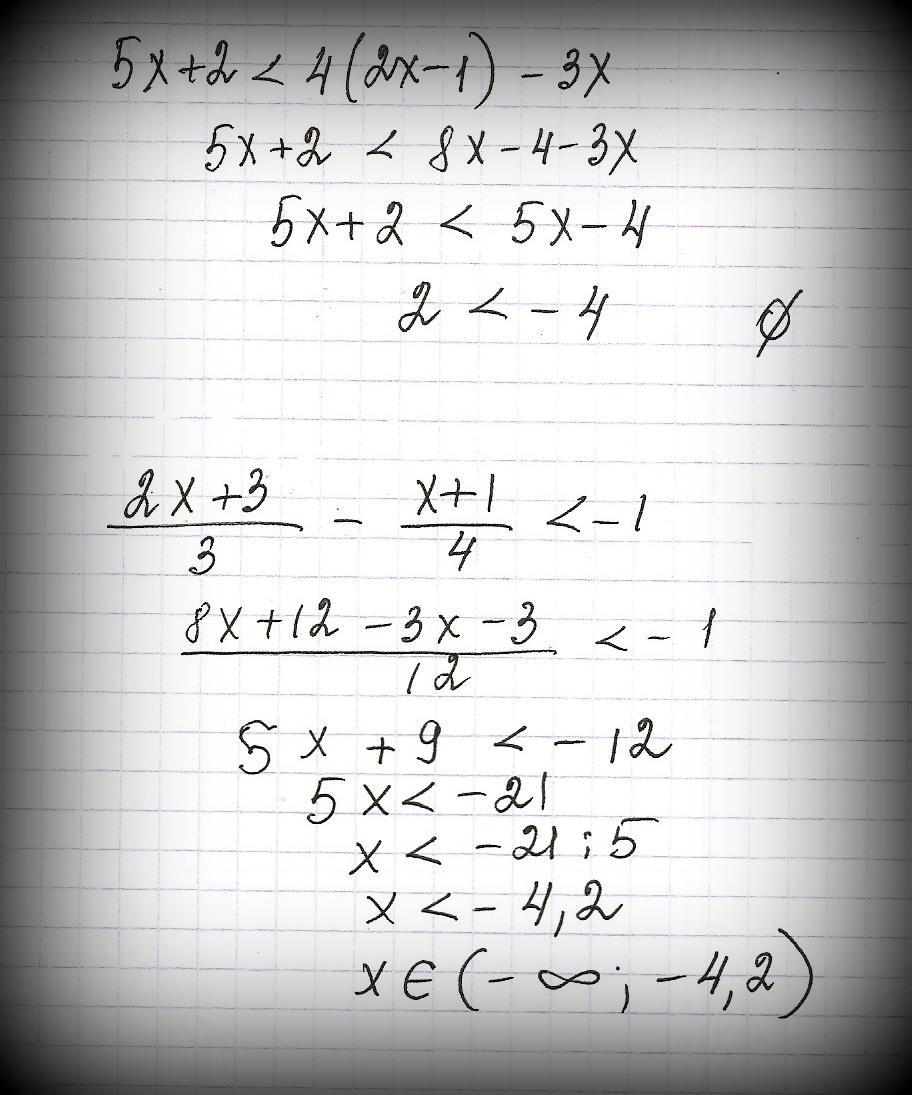 5x+2 < 4(2x-1) - 3x
5x+2 < 8x-4-3x
5x+2 < 5x-4
2 < -4 ∅
(2x+3)/3 - (x+1)/4 < -1
(8x+12-3x-3)/12 < -1
5x + 9 < -12
5x < -21
x < -21:5
x < -4,2
x ∈ (-∞; -4,2)